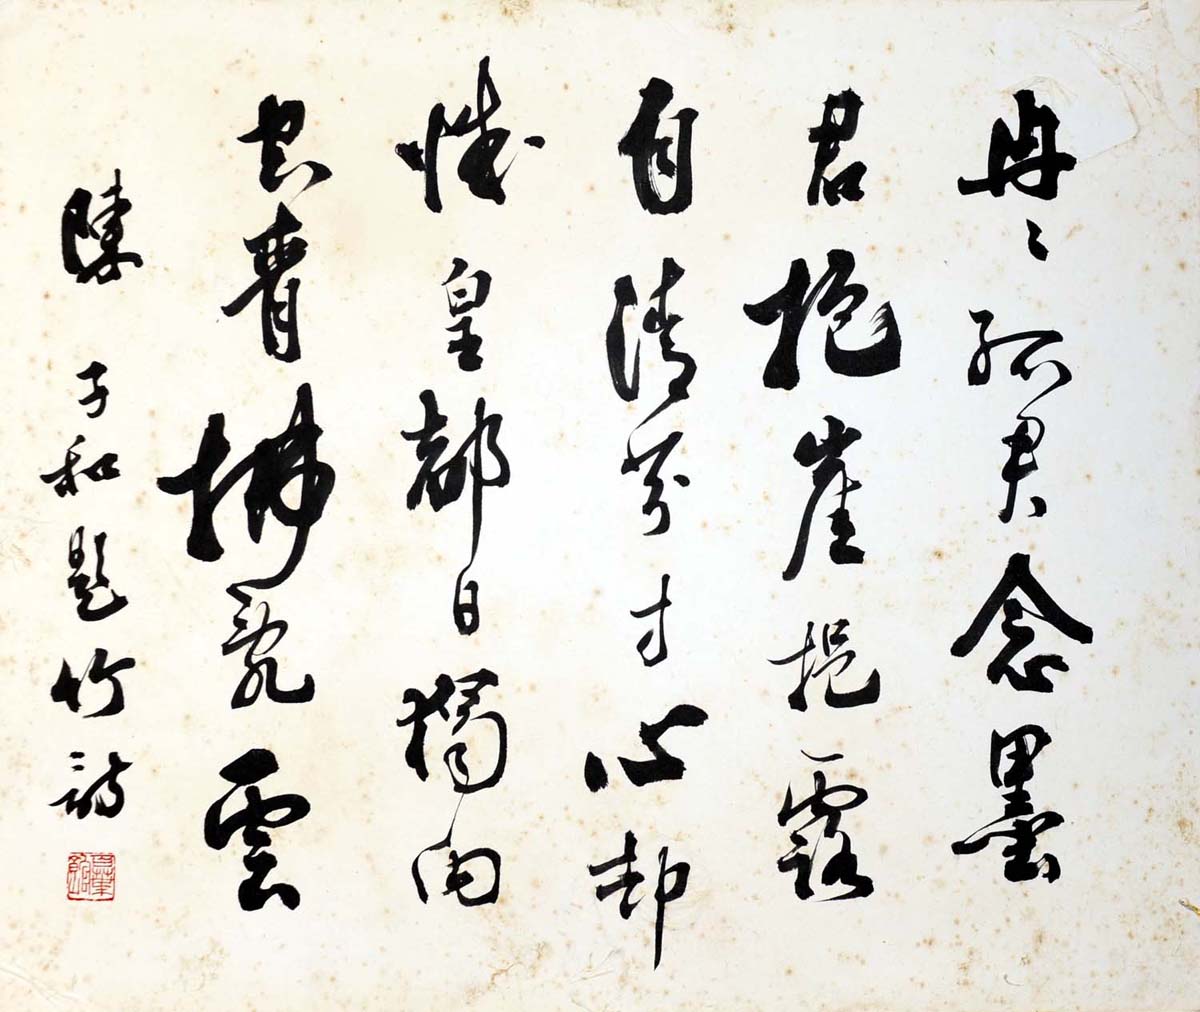 冉々孤君念墨
君抱崖挹露
自清芬寸心却
皇都日獨向
拂亂雲
陳子和題竹詩